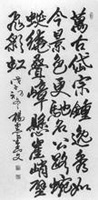 萬古岱宗鍾逸秀如
今景色更馳名公路蜿
蜒繞疊嶂懸崖峭壁
飛彩虹